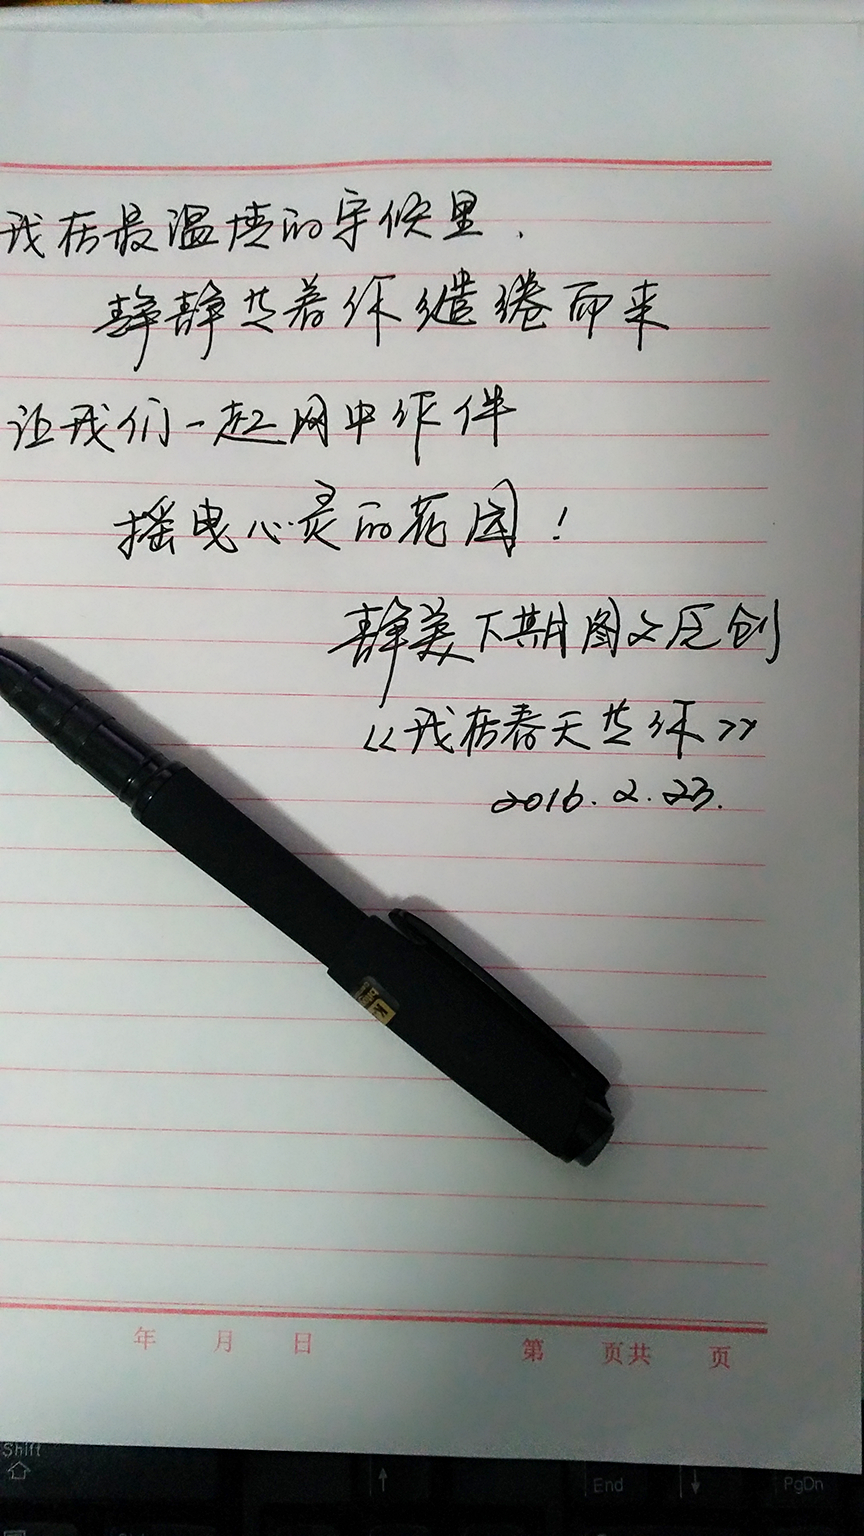 我在最温情的守候里，
静静等着你缱绻而来
让我们一起网中作伴
摇曳心灵的花园！
静美下期图文原创
《我在春天等你》
2016.2.23.
年 月 日 第 页共 页
Shift
End
PgDn